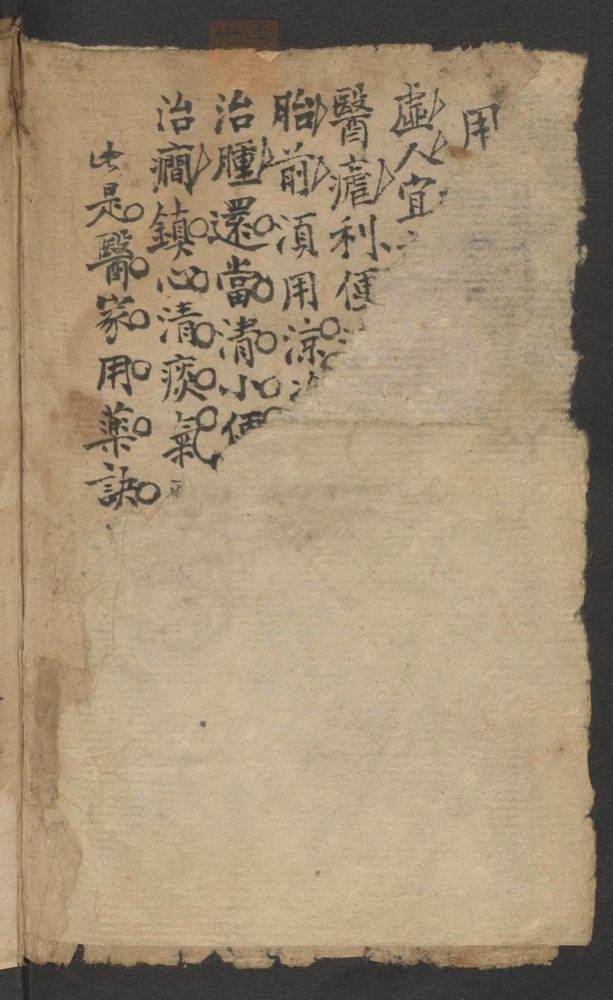 用
虛人宜
醫瘧利便
胎前須用涼
治腫還當清小便
治癎鎮心清痰氣
此是醫家用藥訣